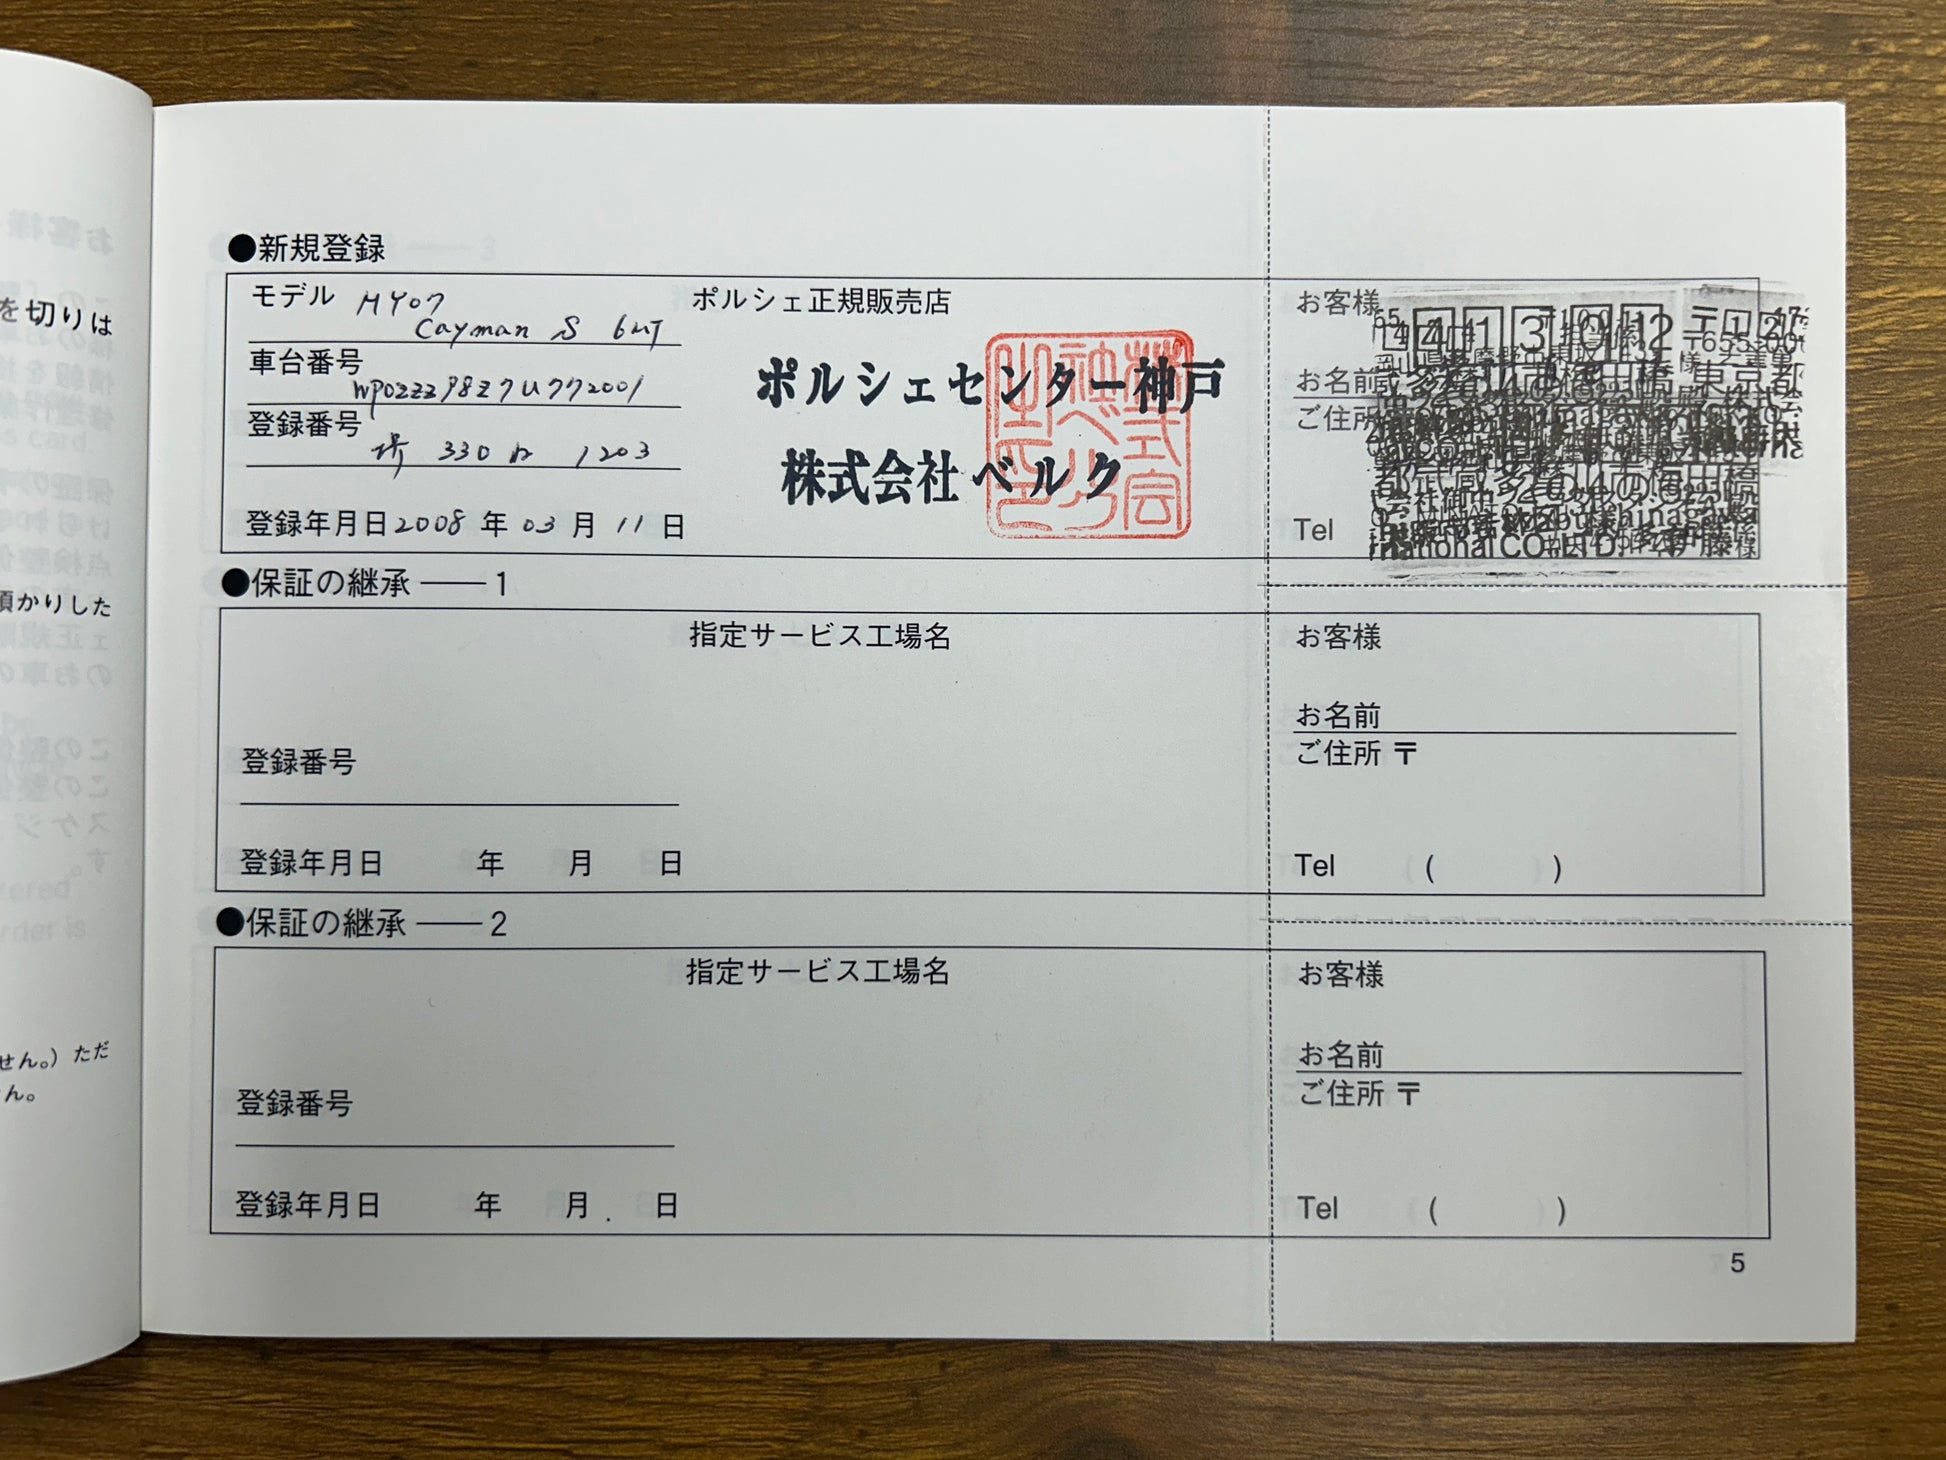 を切りは
頂かりした
せん。）ただ
ん。
●新規登録
モデル MY07
Cayman S 6MT
ポルシェ正規販売店
お客様
車台番号
WP0ZZZ98Z7U772001
ポルシェセンター神戸
お名前
登録番号
堺 330 わ 1203
ご住所
株式会社ベルク
登録年月日 2008 年 03 月 11 日
Tel
●保証の継承 —— 1
指定サービス工場名
お客様
お名前
登録番号
ご住所 〒
登録年月日 年 月 日
Tel ( )
●保証の継承 —— 2
指定サービス工場名
お客様
お名前
登録番号
ご住所 〒
登録年月日 年 月 日
Tel ( )
5